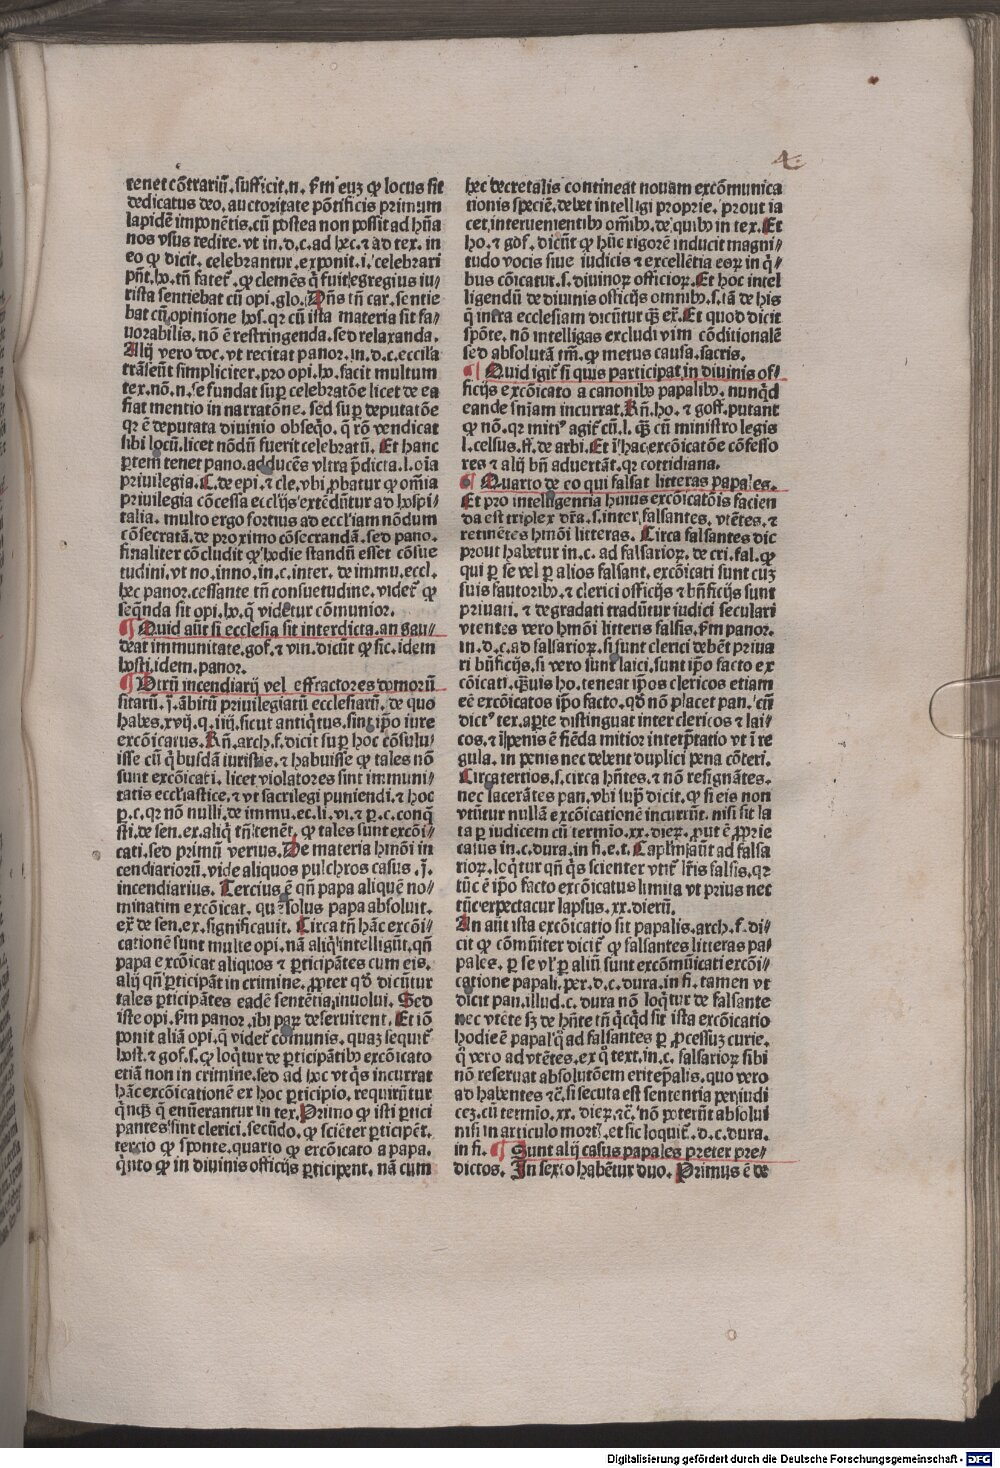 4
tenet cõtrariũ. sufficit. n. ẜm eũ ꝙ locus sit
dedicatus deo. auctoritate põtificis primum
lapidẽ imponẽtis. cũ postea non possit ad hũa
nos vsus redire. vt in. d. c. ad hec. ⁊ ad tex. in
eo ꝙ dicit. celebrantur. exponit. i. celebrari
pñt. ho. tñ fatet᷑. ꝙ clemẽs q̃ fuit egregius iu⸗
rista sentiebat cũ opi. glo. Dñs tñ car. sentie
bat cũ opinione hos. qr cũ ista materia sit fa⸗
uorabilis. nõ ẽ restringenda. sed relaxanda.
Alij vero doc. vt recitat panor. in. d. c. eccĩa
trãseũt simpliciter. pro opi. ho. facit multum
tex. nõ. n. se fundat suꝑ celebratõe licet de ea
fiat mentio in narratõne. sed suꝑ deputatõe
qr ẽ deputata diuinio obseq̃o. q̃ rõ vendicat
sibi locũ. licet nõdũ fuerit celebratũ. Et hanc
ꝑtem tenet pano. adducẽs vltra p̃dicta. l. oĩa
priuilegia. C. de epi. ⁊ cle. vbi ꝓbatur ꝙ om̃ia
priuilegia cõcessa eccl̃ijs extẽdũtur ad hospi⸗
talia. multo ergo fortius ad eccl'iam nõdum
cõsecratã. de proximo cõsecrandã. sed pano.
finaliter cõcludit ꝙ hodie standũ esset cõsue
tudini. vt no. inno. in. c. inter. de immu. eccl.
hec panor. cessante tñ consuetudine. videt᷑ ꝙ
seq̃nda sit opi. ho. q̃ videtur cõmunior.
¶ Quid aũt si ecclesia sit interdicta. an gau⸗
deat immunitate. gof. ⁊ vin. dicũt ꝙ sic. idem
hosti. idem. panor.
¶ Vtrũ incendiarij vel effractores domorũ
sitarũ. j̃. ãbitũ priuilegiatũ ecclesiarũ. de quo
habes. xvij. q. iiij. sicut antiq̃tus. sint ip̃o iure
excõicatus. Rñ. arch. f. dicit suꝑ hoc cõsulu⸗
isse cũ q̃busdã iuristis. ⁊ habuisse ꝙ tales nõ
sunt excõicati. licet violatores sint immuni⸗
tatis eccl'iastice. ⁊ vt sacrilegi puniendi. ⁊ hoc
ꝑ. c. qr nõ nulli. de immu. ec. li. vi. ⁊ ꝑ. c. conq̃
sti. de sen. ex. aliq̃ tñ tenẽt. ꝙ tales sunt excõi⸗
cati. sed primũ verius. De materia hmõi in
cendiariorũ. vide aliquos pulchros casus. j̃.
incendiarius. Tercius ẽ qñ papa aliquẽ no⸗
minatim excõicat. qu? solus papa absoluit.
ex̃ de sen. ex. significauit. Circa tñ hãc excõi⸗
cationẽ sunt multe opi. nã aliq̃ intelligũt. qñ
papa excõicat aliquos ⁊ ꝑticipãtes cum eis.
alij qñ ꝑticipãt in crimine. ꝓpter qd̃ dicũtur
tales ꝑticipãtes eadẽ sentẽtia inuolui. Sed
iste opi. ẜm panor. ibi paꝝ deseruirent. Et iõ
ponit aliã opi. q̃ videt᷑ cõmunis. quaz sequit᷑
host. ⁊ gof. s. ꝙ loq̃tur de ꝑticipãtibꝰ excõicato
etiã non in crimine. sed ad hoc vt q̃s incurrat
hãc excõicationẽ ex hoc ꝑticipio. requirũtur
q̃nqꝫ q̃ enũerantur in tex. Primo ꝙ isti ꝑtici
pantes sint clerici. secũdo. ꝙ sciẽter ꝑticipẽt.
tercio ꝙ sponte. quarto ꝙ excõicato a papa.
q̃nto ꝙ in diuinis officijs ꝑticipent. nã cum
hec decretalis contineat nouam excõmunica
tionis speciẽ. debet intelligi proprie. prout ia
cet. interuenientibꝰ om̃ibꝰ. de quibꝰ in tex. Et
ho. ⁊ gof. dicũt ꝙ hũc rigorẽ inducit magni⸗
tudo vocis siue iudicis ⁊ excellẽtia eoꝝ in q̃⸗
bus cõicatur. s. diuinoꝝ officioꝝ. Et hoc intel
ligendũ de diuinis officijs omnibꝰ. s. tã de his
q̃ intra ecclesiam dicũtur qꝫ ex̃. Et quod dicit
spõte. nõ intelligas excludi vim cõditionalẽ
sed absolutã tm̃. ꝙ metus causa. sacris.
¶ Quid igit᷑ si quis participat in diuinis of⸗
ficijs excõicato a canonibꝰ papalibꝰ. nunq̃d
eande sñiam incurrat. Rñ. ho. ⁊ goff. putant
ꝙ nõ. qr mitiꝰ agit᷑ cũ. l. qꝫ cũ ministro legis
l. celsus. ff. de arbi. Et ĩ hac excõicatõe cõfesso
res ⁊ alij bñ aduertãt. qr cottidiana.
¶ Quarto de eo qui falsat litteras papales.
Et pro intelligentia huius excõicatõis facien
da est triplex dr̃a. s. inter falsantes. vtẽtes. ⁊
retinẽtes hmõi litteras. Circa falsantes dic
prout habetur in. c. ad falsarioꝝ. de cri. fal. ꝙ
qui ꝑ se vel ꝑ alios falsant. excõicati sunt cuz
suis fautoribꝰ. ⁊ clerici officijs ⁊ bñficijs sunt
priuati. ⁊ degradati tradũtur iudici seculari
vtentes vero hmõi litteris falsis. ẜm panor.
in. d. c. ad falsarioꝝ. si sunt clerici debẽt priua
ri bñficijs. si vero sunt laici. sunt ip̃o facto ex
cõicati. qꝫuis ho. teneat ip̃os clericos etiam
eẽ excõicatos ip̃o facto. qd̃ nõ placet pan. cũ
dictꝰ tex. aꝑte distinguat inter clericos ⁊ lai⸗
cos. ⁊ ĩ penis ẽ fiẽda mitior interp̃tatio vt ĩ re
gula. in penis nec debent duplici pena cõteri.
Circa tertios. s. circa hñtes. ⁊ nõ resignãtes.
nec lacerãtes pan. vbi sup̃ dicit. ꝙ si eis non
vtũtur nullã excõicationẽ incurrũt. nisi sit la
ta ꝑ iudicem cũ termio. xx. dieꝝ. ꝓut ẽ ꝓprie
casus in. c. dura. in fi. e. t. Capl̃m aũt ad falsa
rioꝝ. loq̃tur qñ q̃s scienter vtit᷑ lr̃is falsis. qr
tũc ẽ ip̃o facto excõicatus limita vt prius nec
tũc expectatur lapsus. xx. dierũ.
An aũt ista excõicatio sit papalis. arch. f. di⸗
cit ꝙ comũiter dicit᷑ ꝙ falsantes litteras pa⸗
pales. ꝑ se vl' ꝑ aliũ sunt excõmũicati excõi⸗
catione papali. per. d. c. dura. in fi. tamen vt
dicit pan. illud. c. dura nõ loq̃tur de falsante
nec vtẽte sꝫ de hñte tñ q̃cq̃d sit ista excõicatio
hodie ẽ papal' q̃ ad falsantes ꝑ ꝓcessuz curie.
q̃ vero ad vtẽtes. ex q̃ text. in. c. falsarioꝝ sibi
nõ reseruat absolutõem erit ep̃alis. quo vero
ad habentes ⁊c̃. si secuta est sententia per iudi
cez. cũ termio. xx. dieꝝ. ⁊c̃. nõ poterũt absolui
nisi in articulo mort᷑. et sic loquit᷑. d. c. dura.
in fi. ¶ Sunt alij casus papales preter pre⸗
dictos. In sexto habẽtur duo. Primus ẽ de
Digitalisierung gefördert durch die Deutsche Forschungsgemeinschaft - DFG